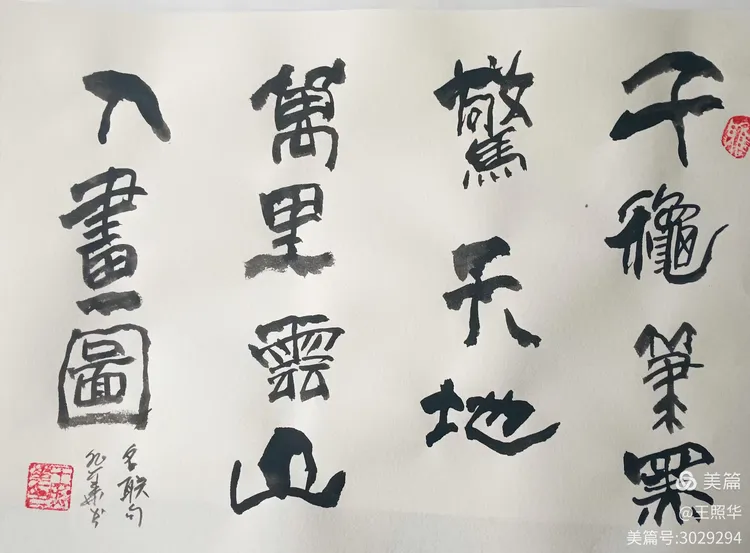 千龝筆墨
驚天地
萬里雲山
入畫圖
名联句
照华书
美篇
@王照华
美篇号:3029294